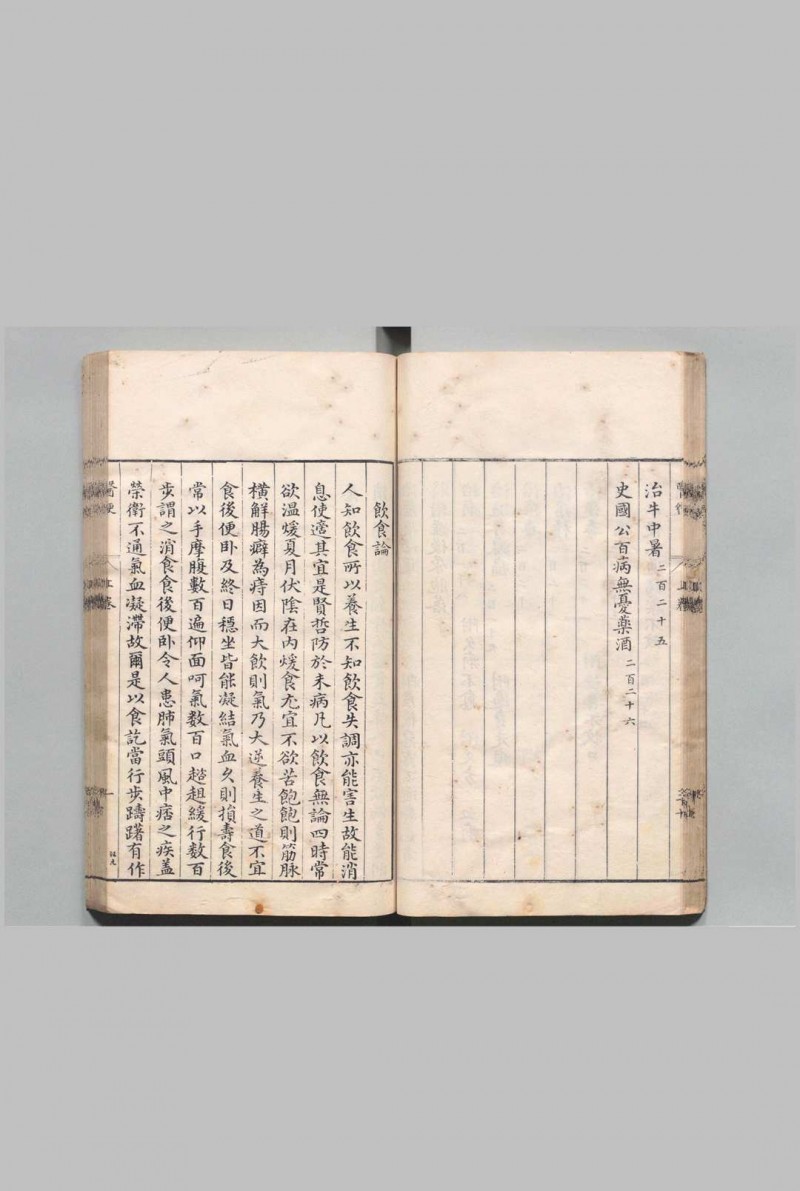 治牛中暑 二百二十五
史國公百病無憂藥酒 二百二十六
飲食論
人知飲食所以養生不知飲食失調亦能害生故能消
息使適其宜是賢哲防於未病凡以飲食無論四時常
欲温煖夏月伏陰在内煖食尤宜不欲苦飽飽則筋脉
橫解腸癖為痔因而大飲則氣乃大逆養生之道不宜
食後便卧及終日穩坐皆能凝結氣血久則損壽食後
常以手摩腹數百遍仰面呵氣數百口趑趄緩行數百
步謂之消食食後便卧令人患肺氣頭風中痞之疾蓋
榮衛不通氣血凝滯故爾是以食訖當行步躊躇有作
醫便
上卷
一